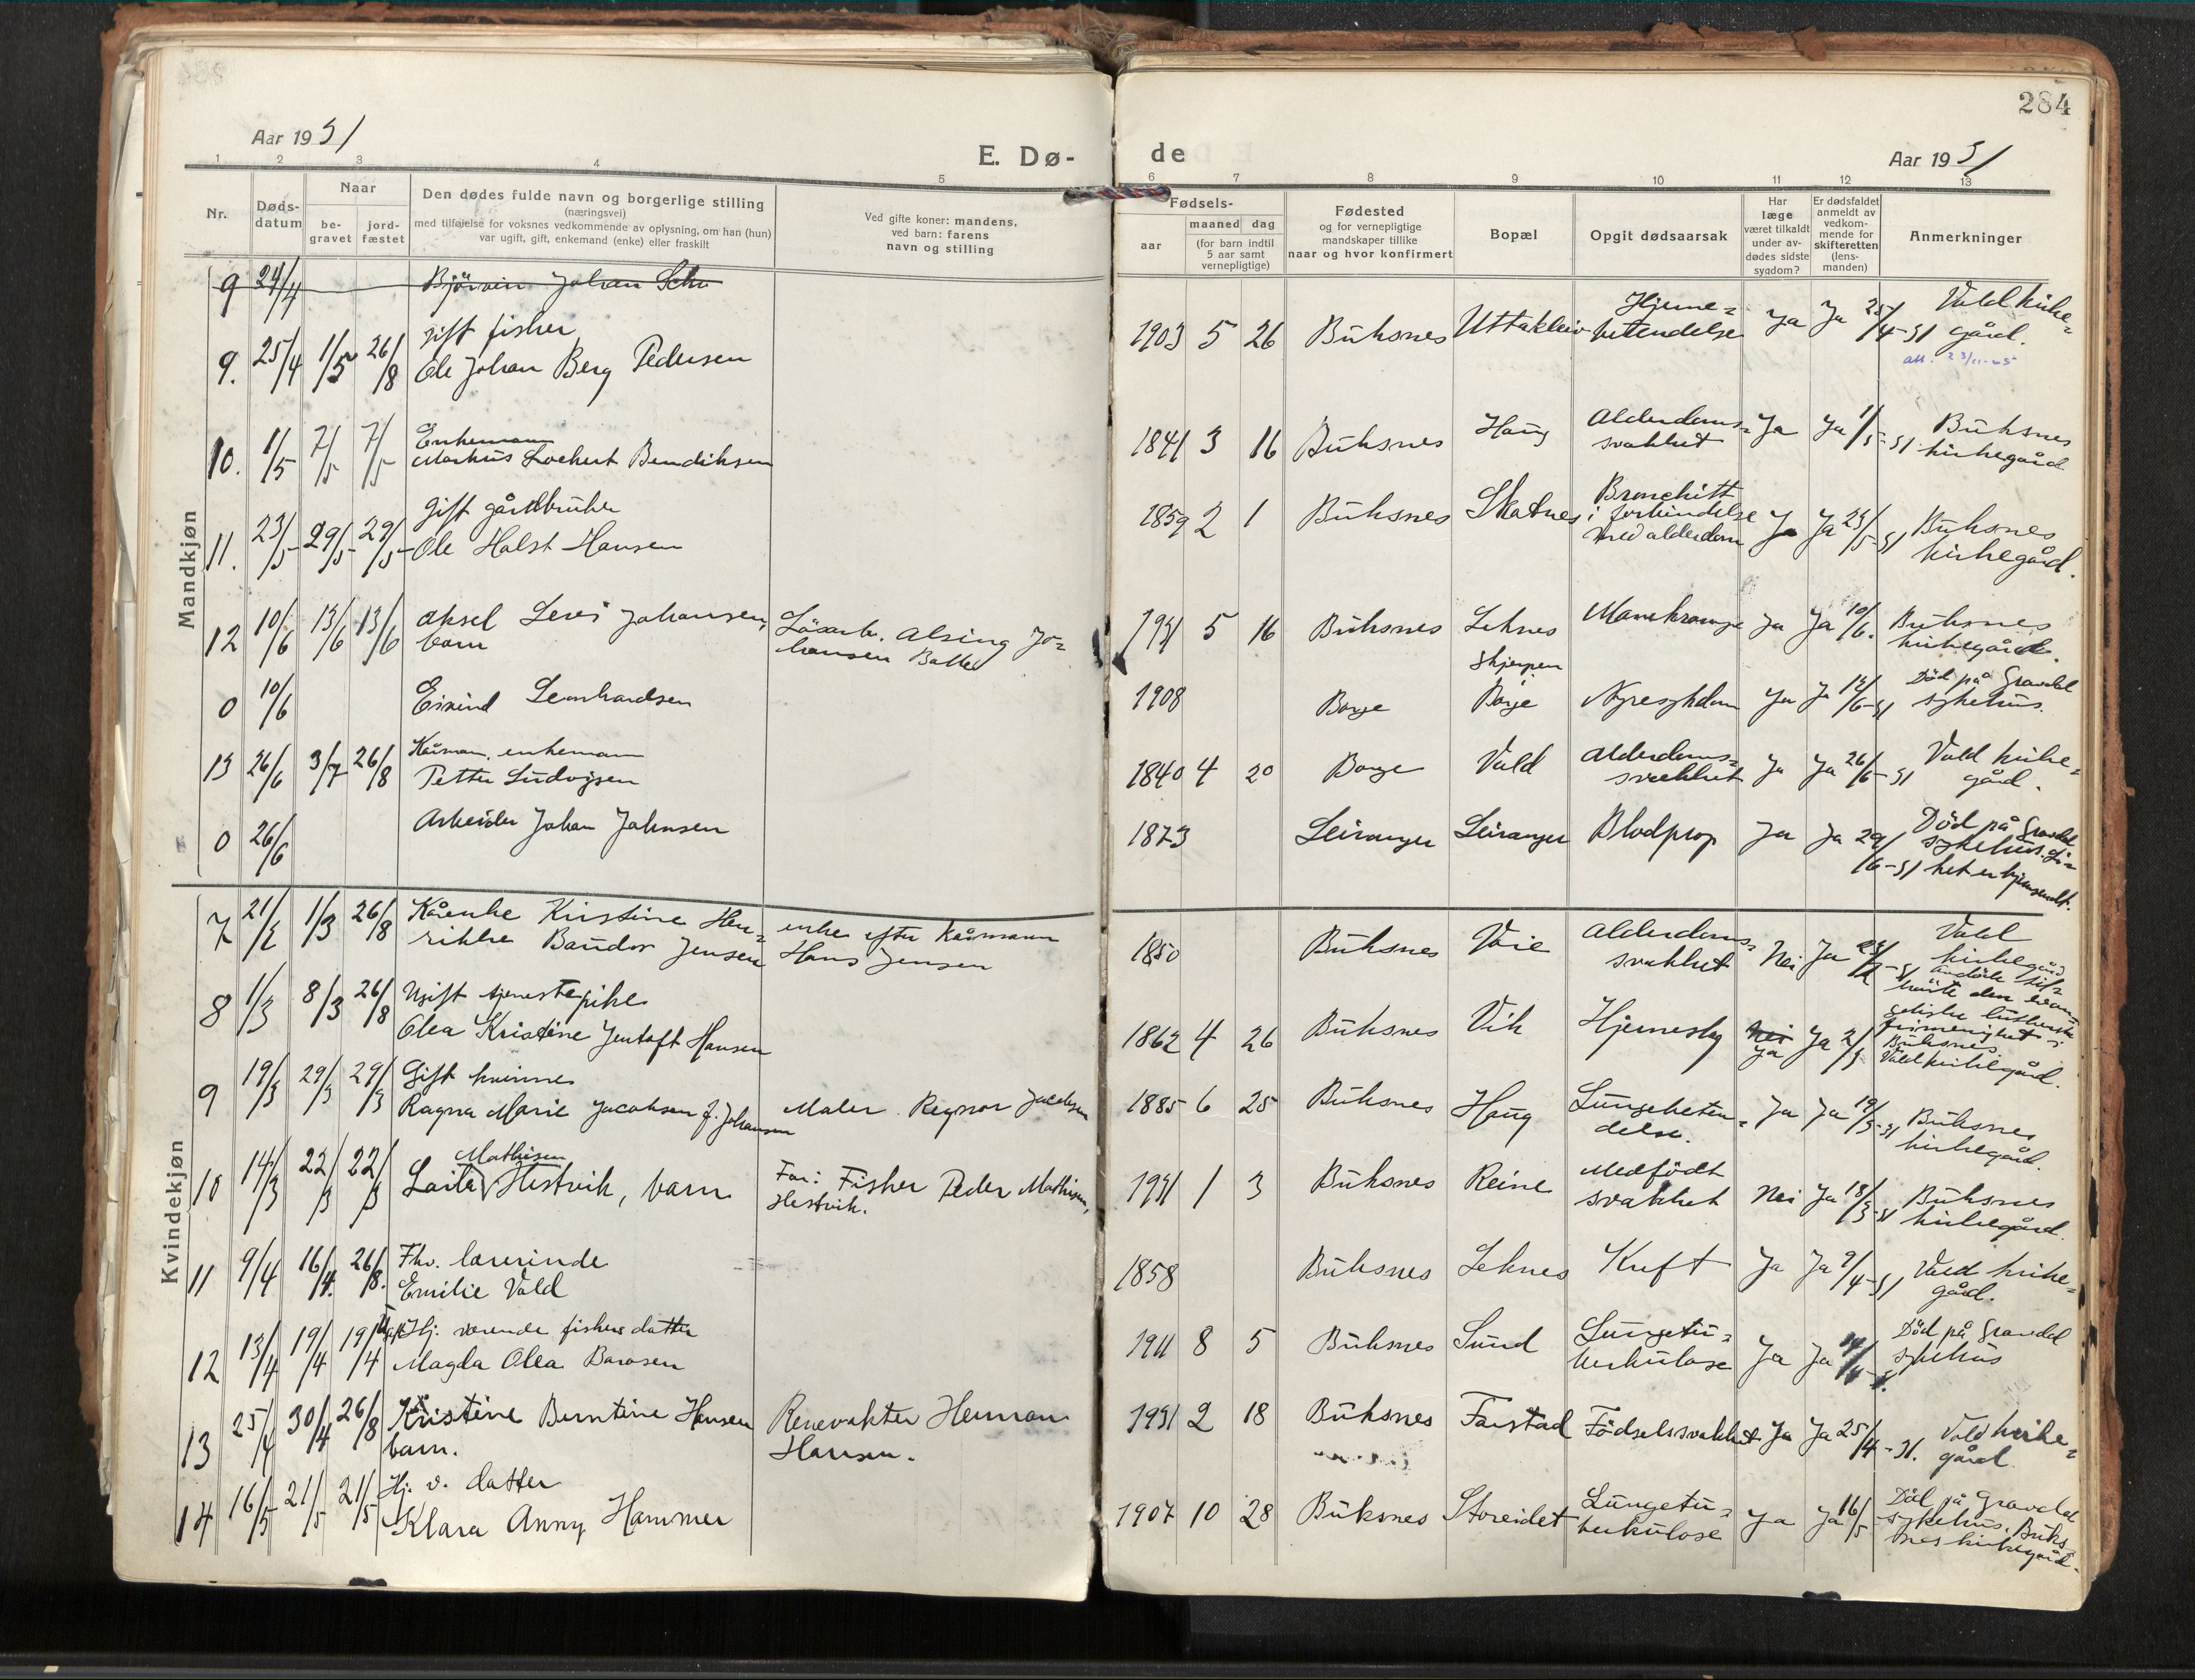 284
Aar 1931
E. Dø-
de
Aar 1931
1 2 3 4 5 6 7 8 9 10 11 12 13
Nr.
Døds-
datum
Naar
be-
gravet
jord-
fæstet
Den dødes fulde navn og borgerlige stilling
(næringsvei)
med tilføielse for voksnes vedkommende av oplysning, om han (hun)
var ugift, gift, enkemand (enke) eller fraskilt
Ved gifte koner: mandens,
ved barn: farens
navn og stilling
Fødsels-
aar
maaned dag
(for barn indtil
5 aar samt
vernepligtige)
Fødested
og for vernepligtige
mandskaper tillike
naar og hvor konfirmert
Bopæl
Opgit dødsaarsak
Har
læge
været tilkaldt
under av-
dødes sidste
sygdom?
Er dødsfaldet
anmeldt av
vedkom-
mende for
skifteretten
(lens-
manden)
Anmerkninger
Mandkjøn
9 24/4 Johan
gift fisker
9. 25/4 1/5 26/8 Ole Johan Berg Pedersen
1903 5 26 Buksnes Uttakleiv Hjerne=
betendelse Ja Ja 25/4-31 Vald kirke=
gård.
Enkemann
10. 1/5 7/5 7/5 Markus Lockert Bendiksen
1841 3 16 Buksnes Haug Alderdoms=
svakhet Ja Ja 1/5-31 Buksnes
kirkegård
Gift gårdbruker
11. 23/5 29/5 29/5 Ole Halst Hansen
1859 2 1 Buksnes Skatnes Bronchitt
i forbindelse
med alderdom Ja Ja 23/5-31 Buksnes
kirkegård.
12 10/6 13/6 13/6 Aksel Levi Johansen,
barn
Løsarb. Alsing Jo=
hansen Balle
1931 5 16 Buksnes Leknes Ja Ja 10/6. Buksnes
kirkegård.
0 10/6 Eivind Leonhardsen
1908 Borge Skjerpen
Borge Nyresykdom Ja Ja 12/6-31 Död på Gravdal
sykehus.
Kårmann, enkemann
13 26/6 3/7 26/8 Petter Ludvigsen
1840 4 20 Borge Vald Alderdoms=
svakhet Ja Ja 26/6-31 Vald kirke=
gård.
0 26/6 Arbeider Johan Johnsen
1873 Leiranger Leiranger Blodprop Ja Ja 29/6-31 Död på Gravdal
sykehus. Li=
ket er hjemsendt.
Kvindekjøn
7 21/2 1/3 26/8 Kårenke Kristine Hen=
rikke Jensen
enke efter kårmann
Hans Jensen
1850 Buksnes Voie Alderdoms=
svakhet Nei Ja Vald
kirkegård
8 1/3 8/3 26/8 Ugift tjenestepike
Olea Kristine Jentoft Hansen
1862 4 26 Buksnes Vik Hjerneslag Nei
Ja Ja 2/3 Avdøde til=
hørte den evan=
geliske lutherske
frimenighet i
Buksnes.
Vald kirkegård.
9 19/3 29/3 29/3 Gift kvinne
Ragna Marie Jacobsen f. Johansen
Maler Regnor Jacobsen
1885 6 25 Buksnes Haug Lungebeten=
delse. Ja Ja 19/3-31 Buksnes
kirkegård.
Mathisen
10 14/3 22/3 22/3 Laila Hestvik, barn
Far: Fisker Peder Mathisen,
Hestvik.
1931 1 3 Buksnes Reine Medfödt
svakhet Nei Ja 18/3-31 Buksnes
kirkegård.
11 9/4 16/4. 26/8. Fhv. lærerinde
Emilie Vald
1858 Buksnes Leknes Kreft Ja Ja 9/4-31 Vald kirke=
gård.
12 13/4 19/4 19/4 Ugift Hj. værende fiskers datter
Magda Olea Barosen
1911 8 5 Buksnes Sund Lungetu=
berkulose Ja Ja Död på Gravdal
sykehus
13 25/4 30/4 26/8 Kristine Berntine Hansen
barn.
Herman
Hansen.
1931 2 18 Buksnes Farstad Födselssvakhet Ja Ja 25/4-31. Vald kirke=
gård
14 16/5 21/5 21/5 Hj. v. datter
Klara Anny Hammer
1907 10 28 Buksnes Storeidet Lungetu=
berkulose Ja Ja 16/5 Död på Gravdal
sykehus. Buks=
nes kirkegård.